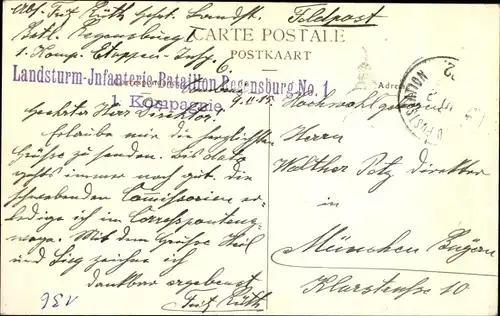 Abs. Fritz Rüth Gefrt. Landst.
Batl. Regensburg I
1. Komp. Etappen-Insp. 6.
Feldpost
CARTE POSTALE
POSTKAART
Landsturm-Infanterie-Bataillon Regensburg No. 1
1. Kompagnie.
9.11.15.
Geehrter Herr Direktor!
Erlaube mir die herzlichsten
Grüsse zu senden. Bis dato
gehts immer noch gut. die
schwebenden Comissionen er-
ledige ich im Correspondenz-
wege. Mit dem Gruße Heil
und Sieg zeichne ich
dankbar ergebenst
Fritz Rüth
Adres
Hochwohlgeboren
Herrn
Walther Petz Direktor
in
München Bayern
Klarstrasse 10
POSTSTATION
V36